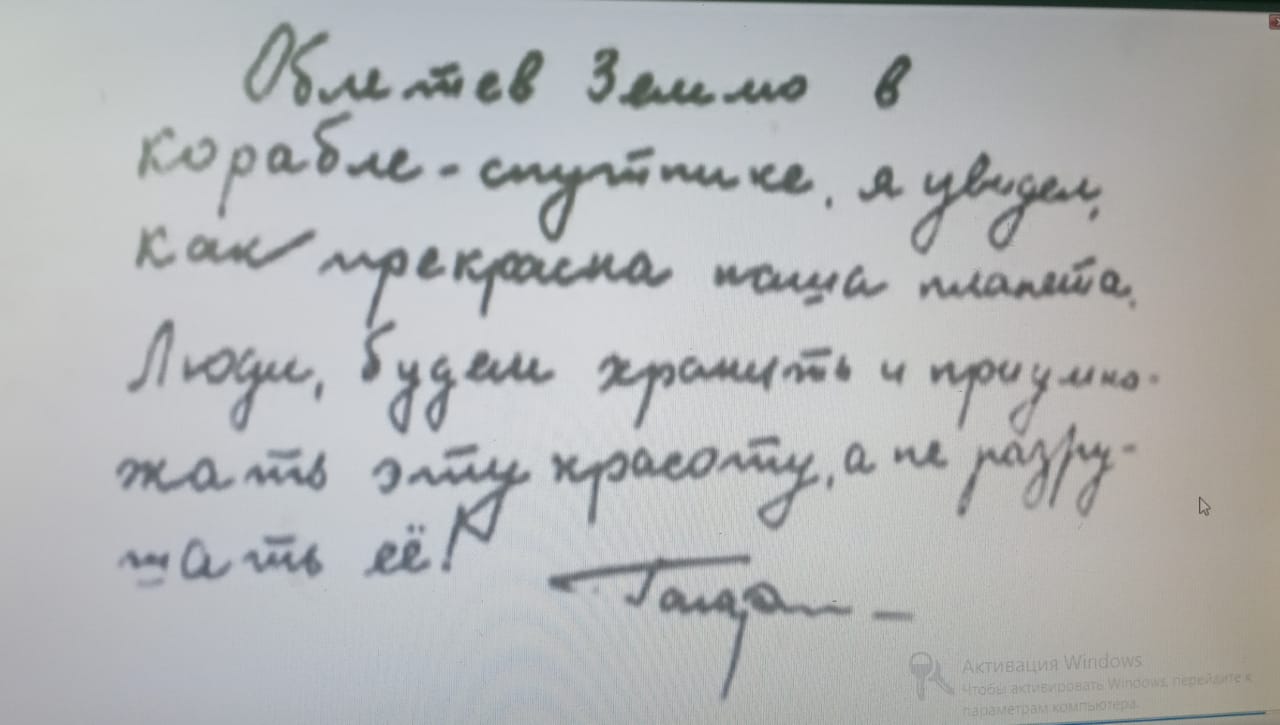 Облетев Землю в
корабле-спутнике, я увидел,
как прекрасна наша планета.
Люди, будем хранить и приумно-
жать эту красоту, а не разру-
шать её!
Гагарин
Активация Windows
Чтобы активировать Windows, перейдите к
параметрам компьютера.